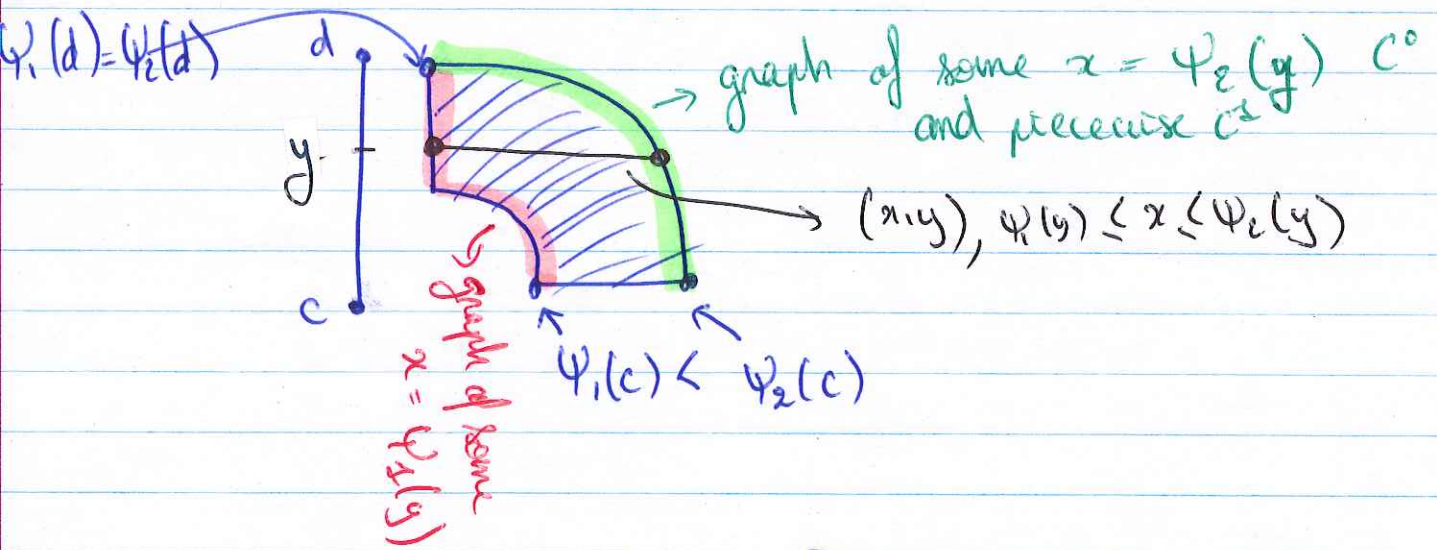 Ψ₁(d)=Ψ₂(d)
d
graph of some x = Ψ₂(y) C⁰
and piecewise C¹
y
(x,y), Ψ₁(y) ≤ x ≤ Ψ₂(y)
c
Ψ₁(c) < Ψ₂(c)
graph of some
x = Ψ₁(y)